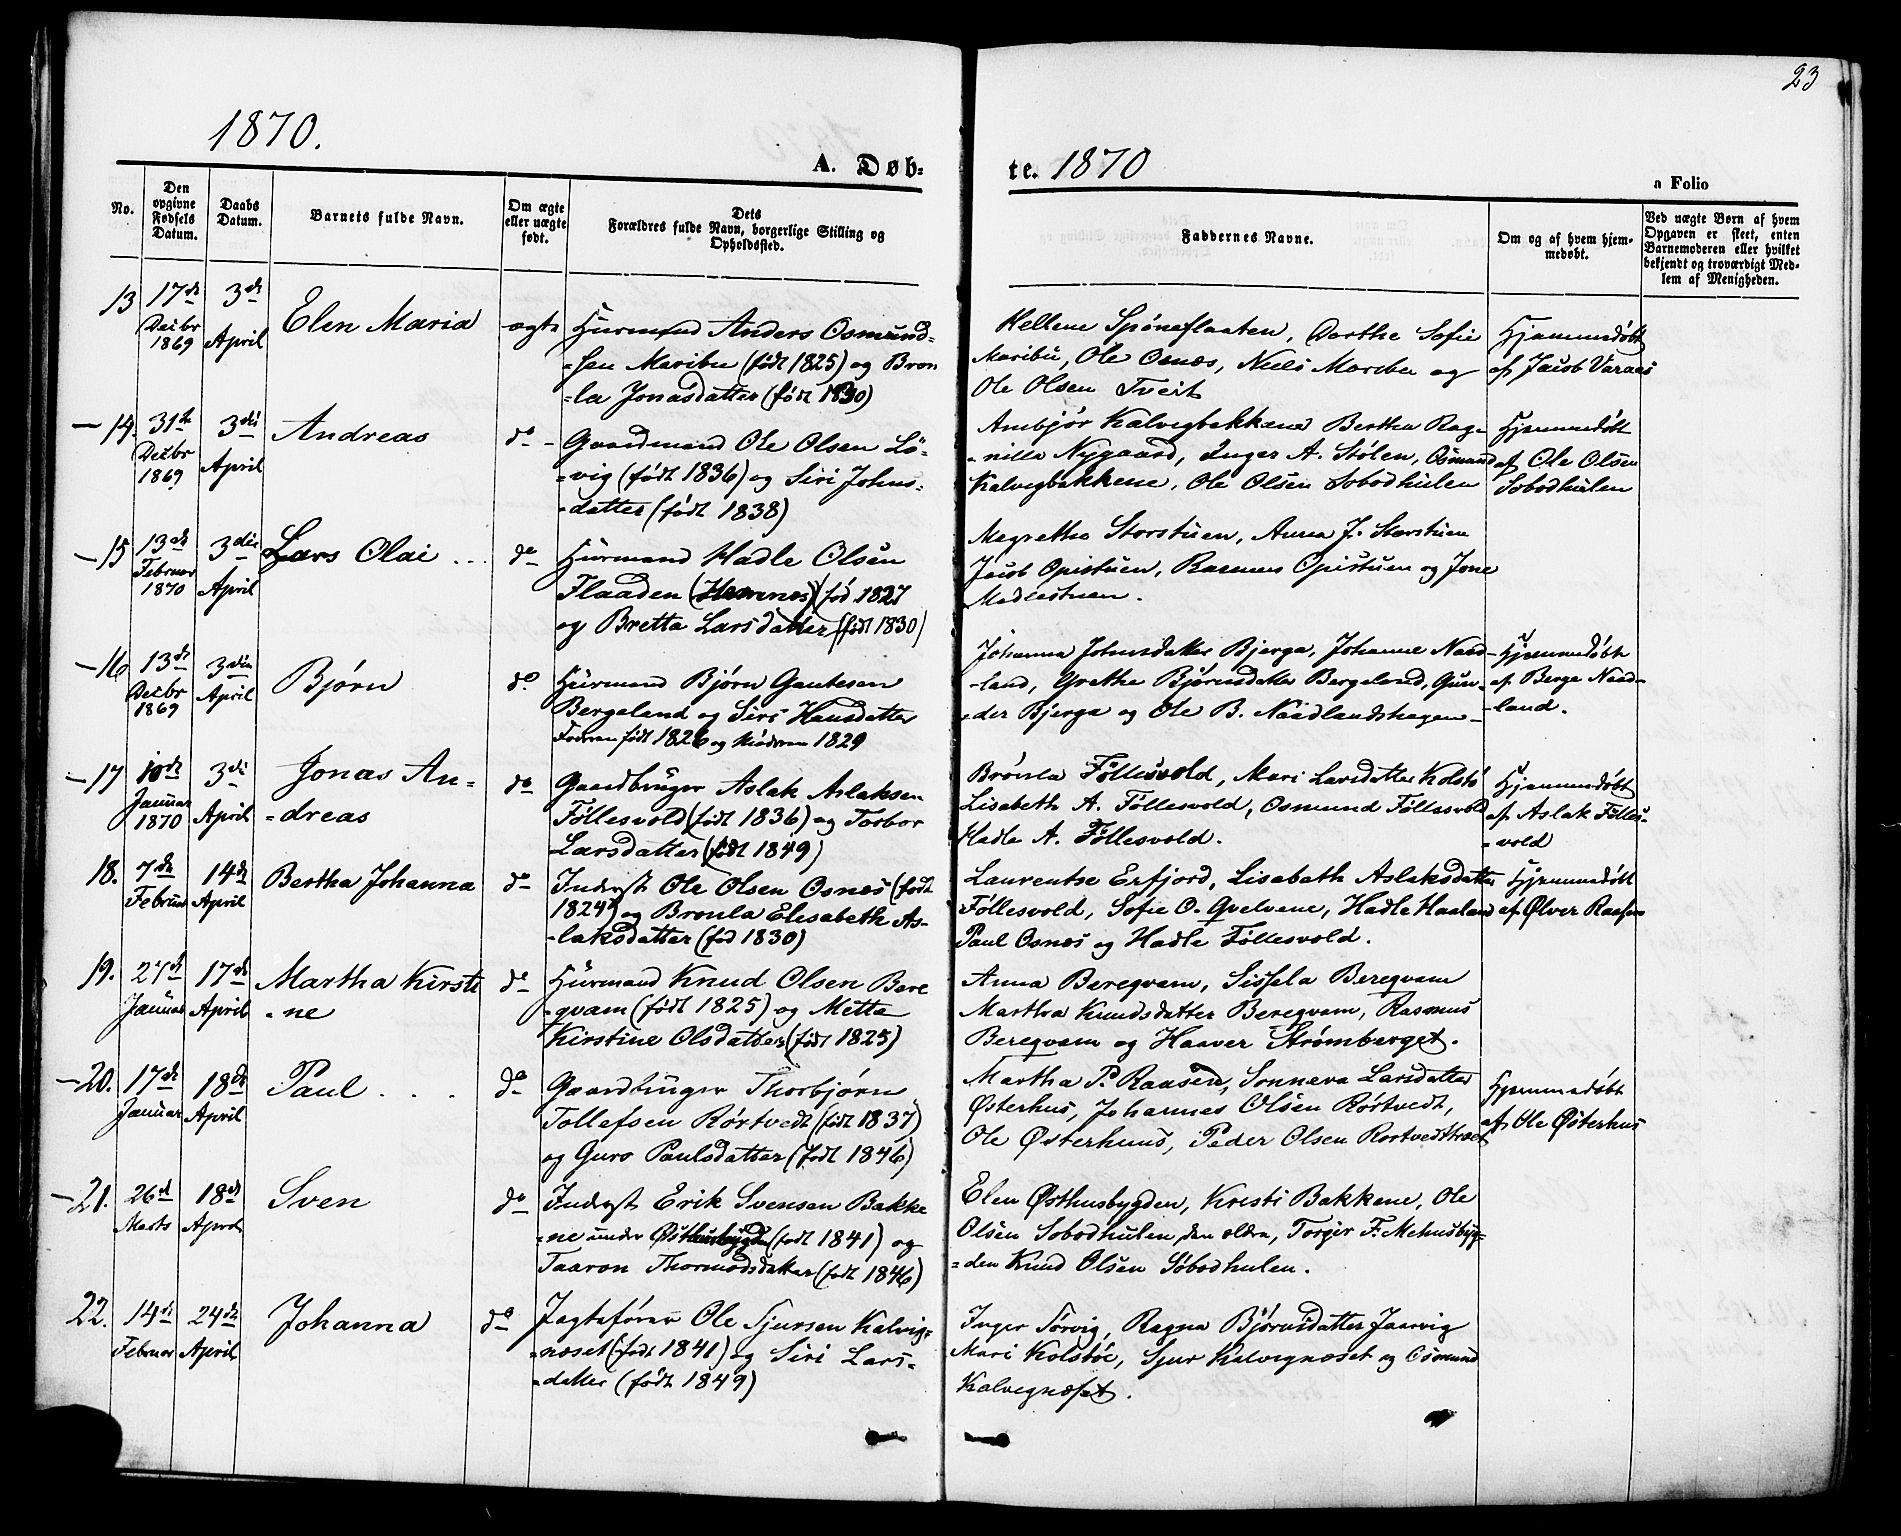 23
1870.
A. Døb-
te. 1870
a Folio
No.
Den opgivne Fødsels Datum.
Daabs Datum.
Barnets fulde Navn.
Om ægte eller uægte født.
Dets Forældres fulde Navn, borgerlige Stilling og Opholdssted.
Faddernes Navne.
Om og af hvem hjemmedøbt.
Ved uægte Børn af hvem Opgaven er skeet, enten Barnemoderen eller hvilket bekjendt og troværdigt Medlem af Menigheden.
13 17de Decbr 1869 3de April Elen Maria ægte
Huusmand Anders Osmund-
-sen Maribu (født 1825) og Bron
-la Jonasdatter (født 1830)
Hellene Spøneflaaten, Dorthe Sofie
Maribu, Ole Osnæs, Niels Maribu og
Ole Olsen Tveit
Hjemmedøbt
af Jacob Varaas
14. 31te Decbr 1869 3die April Andreas do
Gaardmand Ole Olsen Lö-
-vig (født 1836) og Siri Johns-
-datter (født 1838)
Ambjör Kalvigbakkene Bertha Rag-
-nille Nygaard, Inger A. Stølen, Osmund
Kalvigbakkene, Ole Olsen Sobodhulen
Hjemmedøbt
af Ole Olsen
Sobodhulen
15 13de Februar 1870 3die April Lars Olai do
Huusmand Hadle Olsen
Flaaden (Hævnes) (fød 1827
og Bretta Larsdatter (født 1830)
Megrethe Storstuen, Anna J. Storstuen
Jacob Opistuen, Rasmus Opistuen og Jone
Mediestuen.
16 13de Decbr 1869 3die April Bjørn do
Huusmand Bjørn Gautesen
Bergeland og Siri Hansdatter
Faderen født 1826 og Moderen 1829
Johanna Johnsdatter Bjerga, Johanne Naad-
-land, Grethe Bjørnsdatter Bergeland, Gun-
-der Bjerga og Ole B. Naadlandshagen
Hjemmedøbt
af Berge Naad-
-land.
17 10de Januar 1870 3die April Jonas An-
-dreas do
Gaardbruger Aslak Aslaksen
Föllesvold (født 1836) og Torbor
Larsdatter (født 1849)
Brónla Föllesvold, Mari Larsdatter Kolstö
Lisabeth A. Föllesvold, Osmund Föllesvold
Hadle A. Föllesvold.
Hjemmedøbt
af Aslak Fölles-
-vold
18. 7de Februar 14de April Bertha Johanna do
Inderst Ole Olsen Osnæs (født
1824) og Bronla Elisabeth As-
-laksdatter (fød 1830)
Laurentse Erfjord, Lisabeth Aslaksdatter
Föllesvold, Sofie O. Qvelvene, Hadle Haaland
Paul Osnæs og Hadle Föllesvold.
Hjemmedøbt
af Ølver Raasen
19. 27de Januar 17de April Martha Kirsti
-ne do
Huusmand Knud Olsen Bere
-qvam (født 1825) og Metta
Kirstine Olsdatter (født 1825)
Anna Bereqvam, Sissela Bereqvam
Martha Knudsdatter Bereqvam, Rasmus
Bereqvam og Haaver Strømberget.
20. 17de Januar 18de April Paul do
Gaardbruger Thorbjørn
Tollefsen Rørtvedt (født 1837)
og Guro Paulsdatter (født 1846)
Martha P. Raasen, Sonneva Larsdatter
Østerhus, Johannes Olsen Rörtvedt,
Ole Østerhuus, Peder Olsen Rortvedttræet
Hjemmedøbt
af Ole Østerhus
21. 26d Marts 18de April Sven do
Inderst Erik Svensen Bakke
-ne under Østhusbygden (født 1841) og
Taaron Thormodsdatter (født 1846)
Elen Østhusbygden, Kristi Bakkene, Ole
Olsen Sobodhulen, den ældre, Torger F. Mehusbyg-
-den Knud Olsen Søbodhulen.
22. 14de Februar 24de April Johanna do
Jagtefører Ole Sjursen Kalvig-
-næset (født 1841) og Siri Lars-
-datter (født 1849)
Inger Törvig, Ragna Björnsdatter Jaarvig
Mari Kolstöe, Sjur Kalvignæset og Osmund
Kalvignæset.